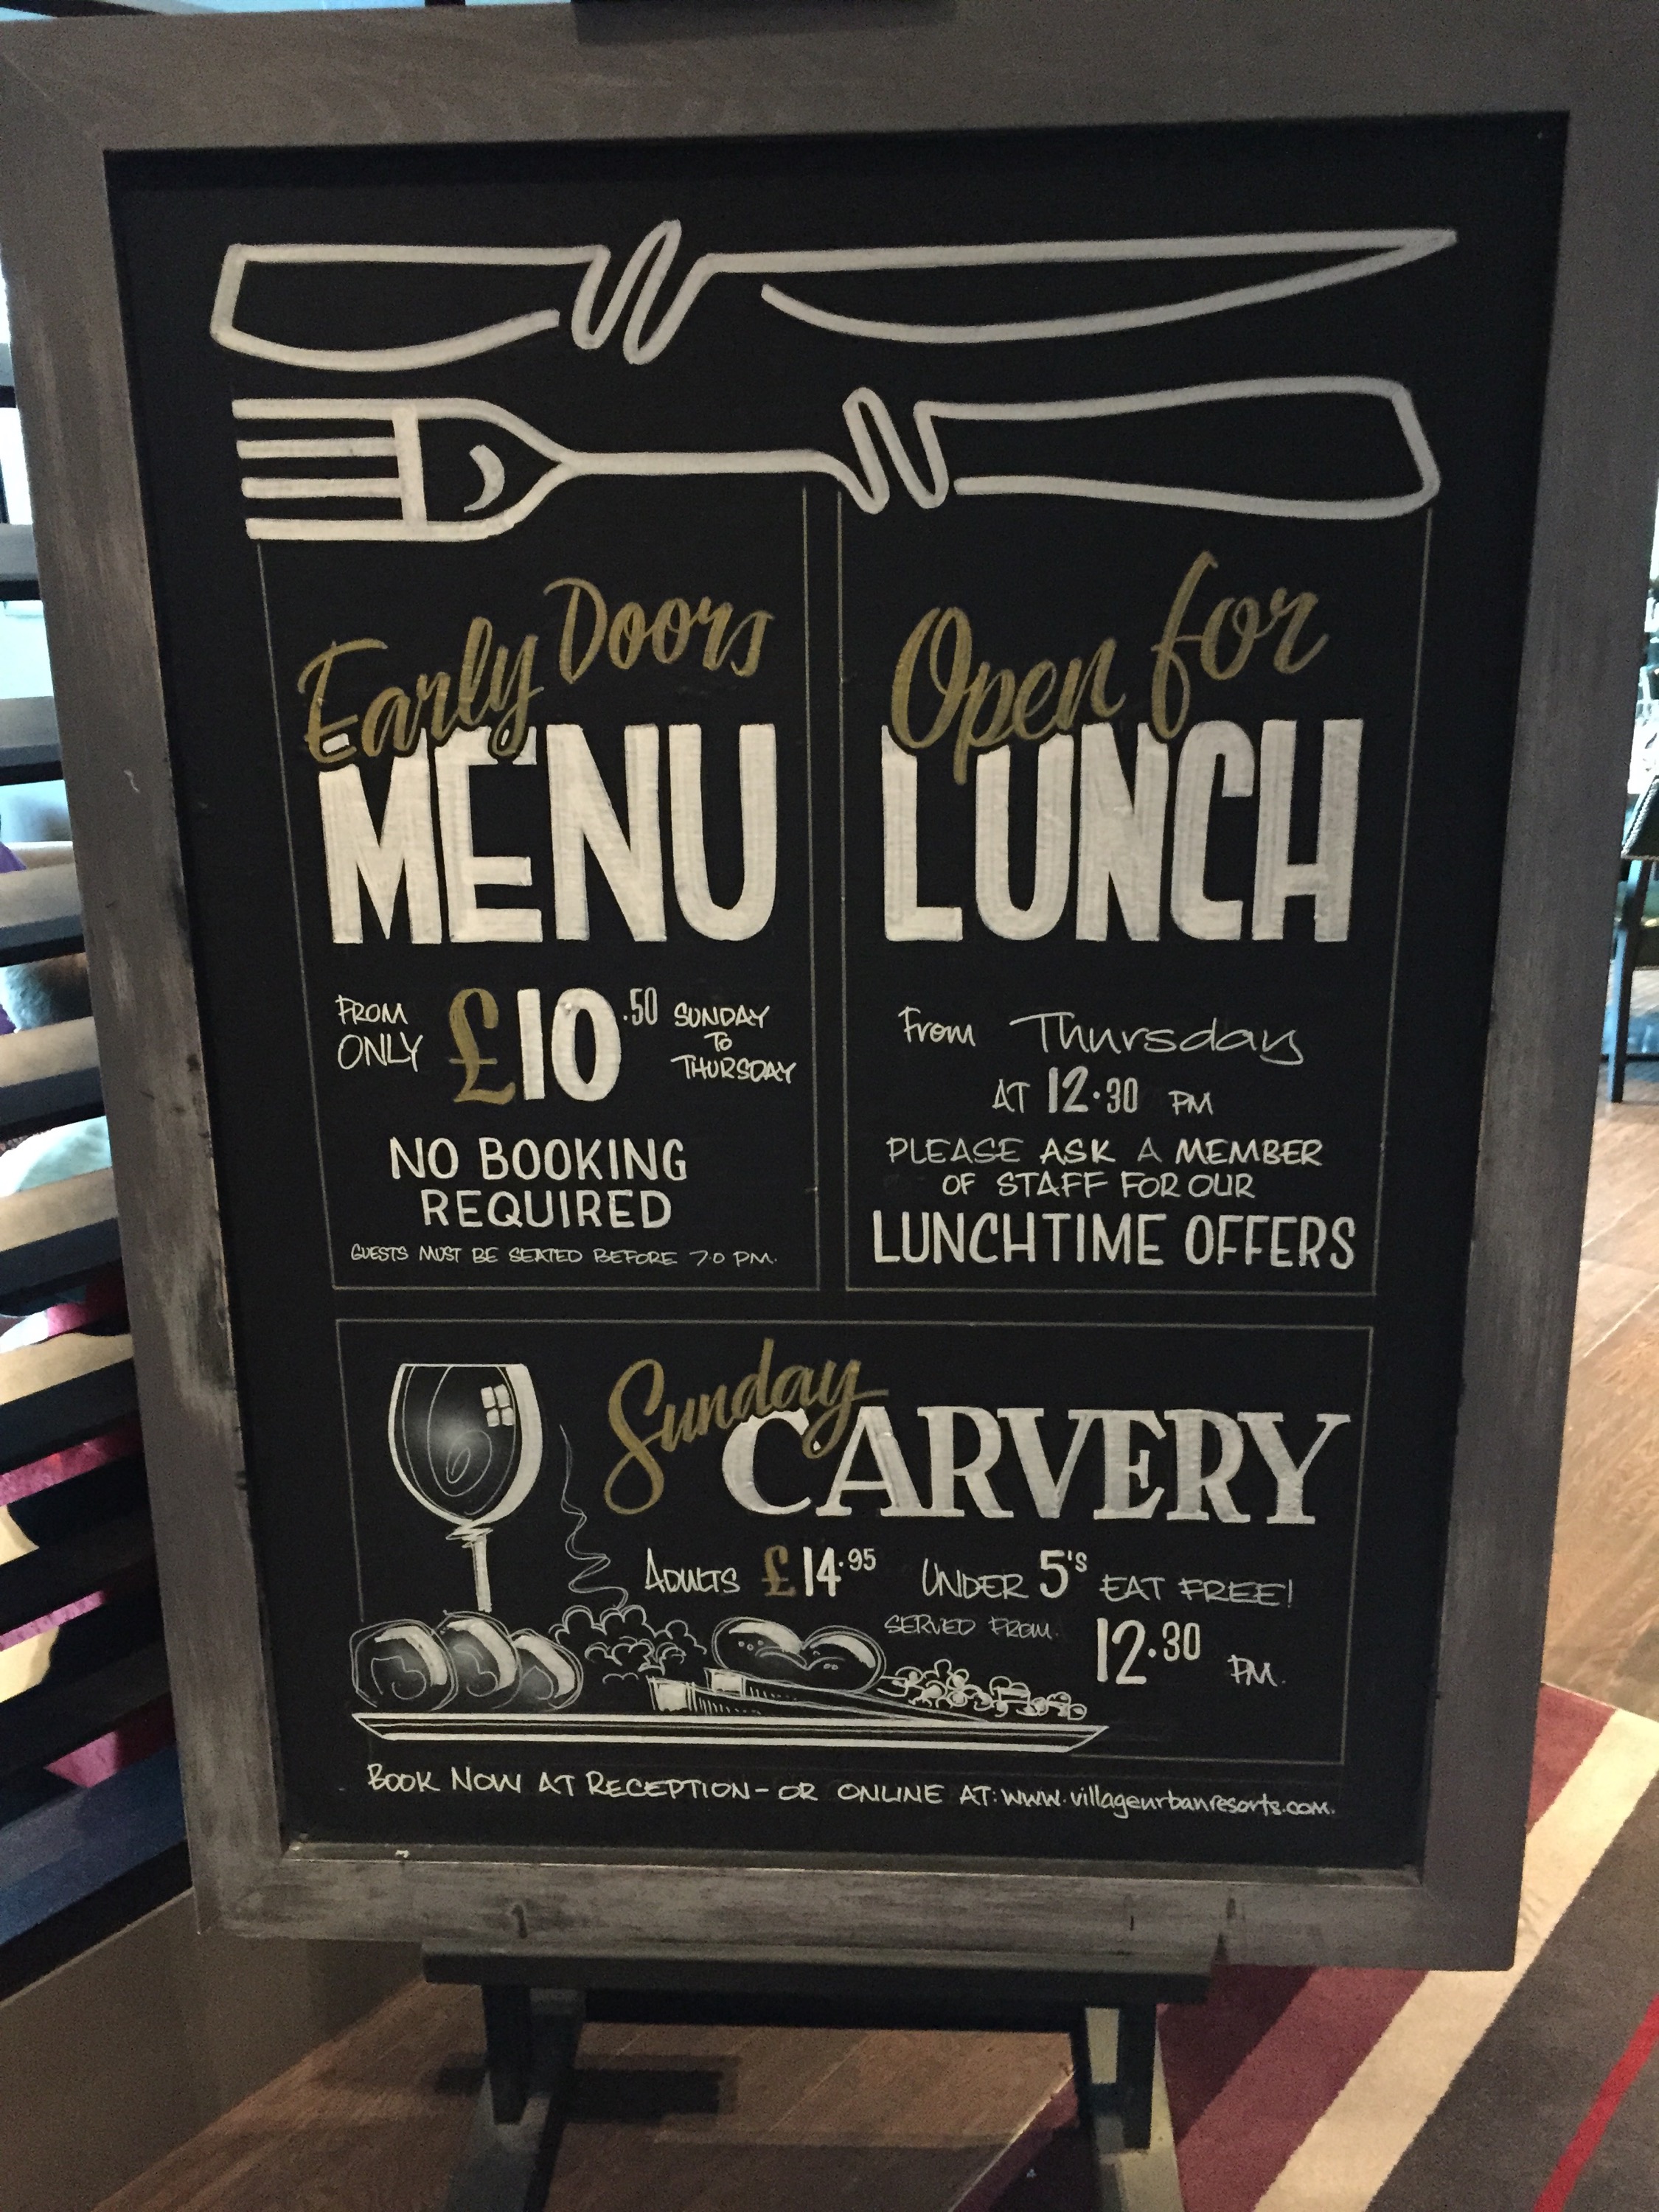 Early Doors
MENU
FROM ONLY £10.50 SUNDAY TO THURSDAY
NO BOOKING
REQUIRED
GUESTS MUST BE SEATED BEFORE 7.0 PM.
Open for
LUNCH
From Thursday
AT 12.30 PM
PLEASE ASK A MEMBER
OF STAFF FOR OUR
LUNCHTIME OFFERS
Sunday
CARVERY
ADULTS £14.95 UNDER 5'S EAT FREE!
SERVED FROM 12.30 PM.
BOOK NOW AT RECEPTION - OR ONLINE AT: www.villageurbanresorts.com.